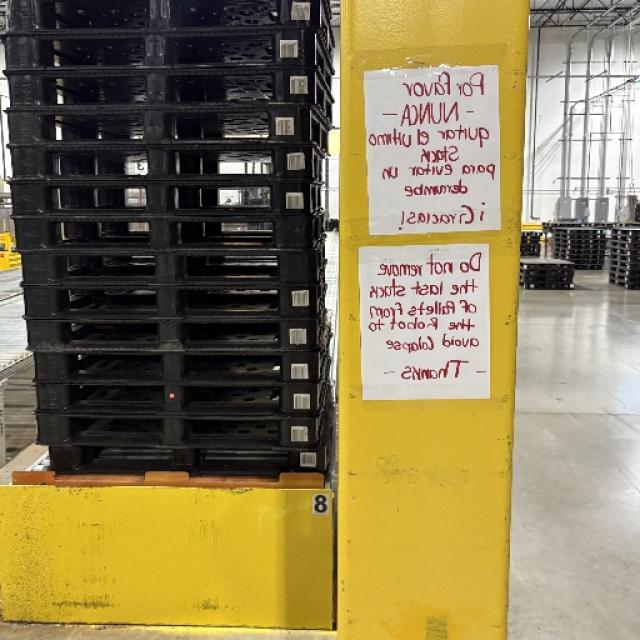 Por favor
- NUNCA -
quitar el ultimo
stack
para evitar un
derrumbe
¡Gracias!
Do not remove
the last stack
of Pallets from
the Robot to
avoid Colapse
- Thanks -
8